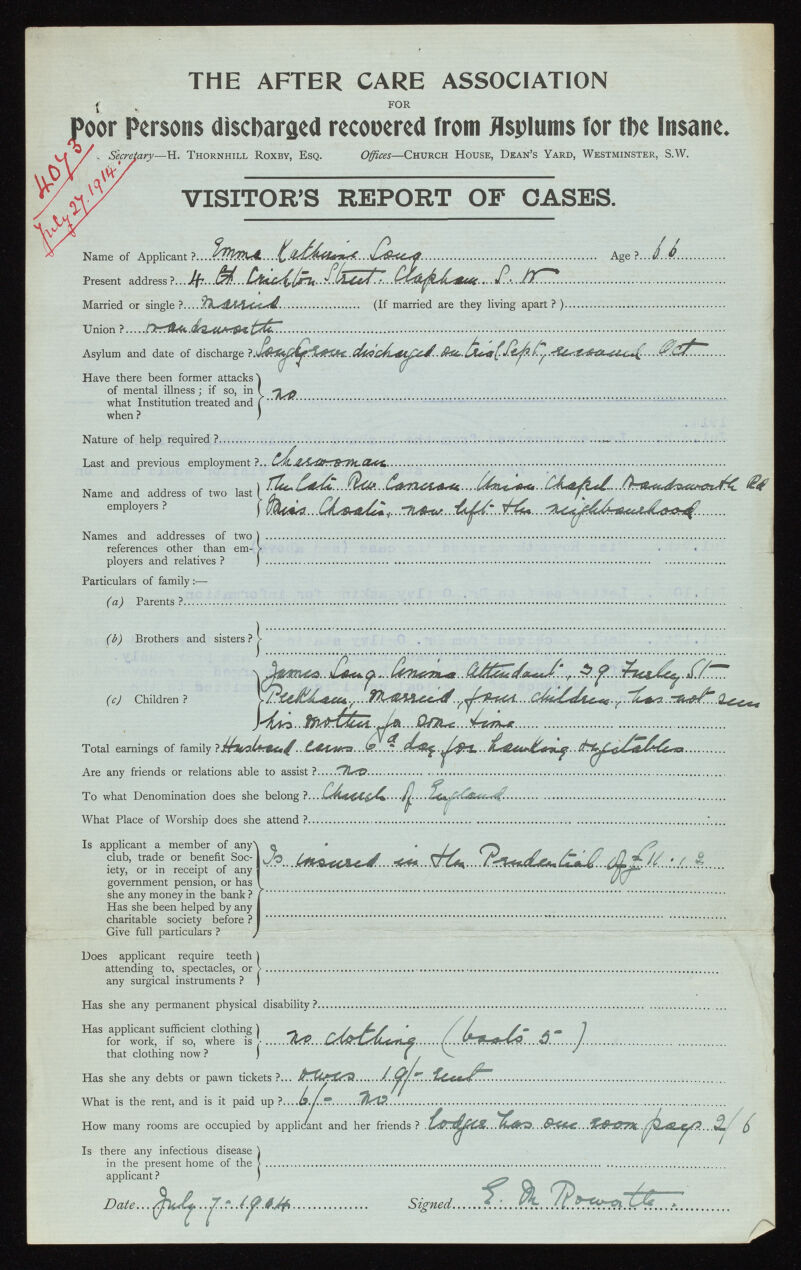 THE AFTER CARE ASSOCIATION
FOR
Poor Persons discharged recovered from Asylums for the Insane.
Secretary—H. Thornhill Roxby, Esq. Offices—Church House, Dean's Yard, Westminster, S.W.
4073
July 27. 1914.
VISITOR'S REPORT OF CASES.
Name of Applicant? Emma Katherine Long Age? 66
Present address? 4 Crichton Street. Clapham S. W
Married or single? Married (If married are they living apart?)
Union? Wandsworth
Asylum and date of discharge? Long Grove discharged on trial Sept, recovered Oct
Have there been former attacks
of mental illness; if so, in
what Institution treated and
when? no
Nature of help required?
Last and previous employment? Charwoman
Name and address of two last
employers? The late Rev. Cameron Union Chapel Wandsworth Rd
Miss Choatis, now left the neighbourhood
Names and addresses of two
references other than em-
ployers and relatives?
Particulars of family:—
(a) Parents?
(b) Brothers and sisters?
(c) Children? James Long Cinima Attendant, 39 Furley St
Peckham, married, four children, has not seen
his mother for some time
Total earnings of family? Husband earns 6d day for hawking vegitables
Are any friends or relations able to assist? no
To what Denomination does she belong? Church of England
What Place of Worship does she attend?
Is applicant a member of any
club, trade or benefit Soc-
iety, or in receipt of any
government pension, or has
she any money in the bank?
Has she been helped by any
charitable society before?
Give full particulars? Is insured in the Prudential of £11
Does applicant require teeth
attending to, spectacles, or
any surgical instruments?
Has she any permanent physical disability?
Has applicant sufficient clothing
for work, if so, where is
that clothing now? no clothing (boots 5)
Has she any debts or pawn tickets? owes 19/- rent
What is the rent, and is it paid up? 6/- no
How many rooms are occupied by applicant and her friends? lodger has one room pays 2/6
Is there any infectious disease
in the present home of the
applicant?
Date July 7 - 1914 Signed E. M. Roworth.